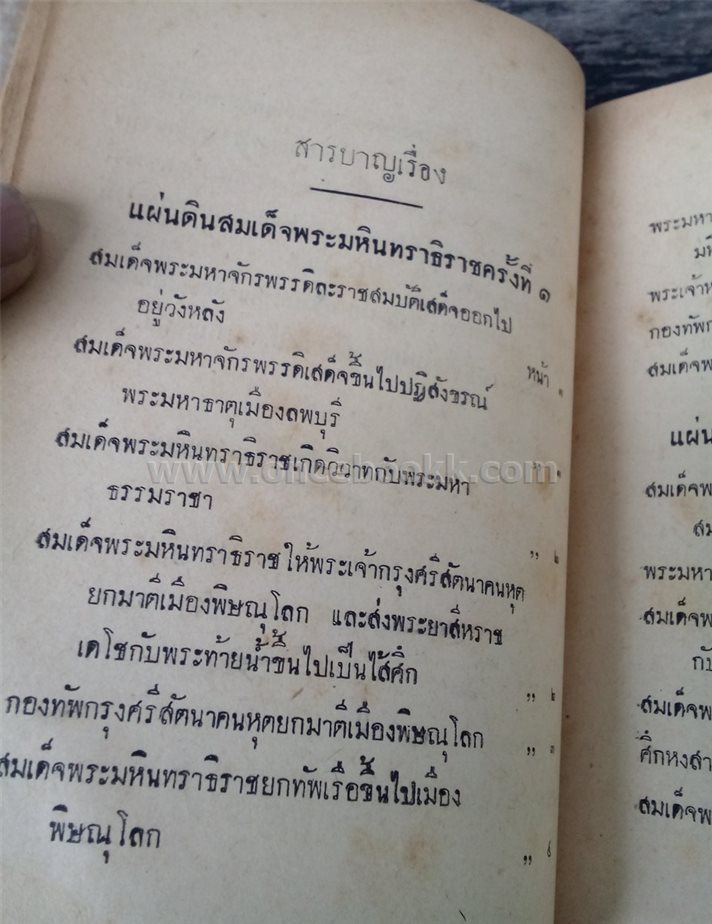 สารบาญเรื่อง
แผ่นดินสมเด็จพระมหินทราธิราชครั้งที่ ๑
สมเด็จพระมหาจักรพรรดิละราชสมบัติเสด็จออกไป
อยู่วังหลัง หน้า ๑
สมเด็จพระมหาจักรพรรดิเสด็จขึ้นไปปฏิสังขรณ์
พระมหาธาตุเมืองลพบุรี ,, ๑
สมเด็จพระมหินทราธิราชเกิดวิวาทกับพระมหา
ธรรมราชา ,, ๒
สมเด็จพระมหินทราธิราชให้พระเจ้ากรุงศรีสัตนาคนหุต
ยกมาตีเมืองพิษณุโลก และส่งพระยาสีหราช
เดโชกับพระท้ายน้ำขึ้นไปเป็นไส้ศึก ,, ๒
กองทัพกรุงศรีสัตนาคนหุตยกมาตีเมืองพิษณุโลก ,, ๓
สมเด็จพระมหินทราธิราชยกทัพเรือขึ้นไปเมือง
พิษณุโลก ,,
พระมหา
พระเจ้าห
กองทัพก
สมเด็จพ
แผ่น
สมเด็จพ
สม
พระมหา
สมเด็จพ
กับ
สมเด็จพ
ศึกหงสา
สมเด็จพ